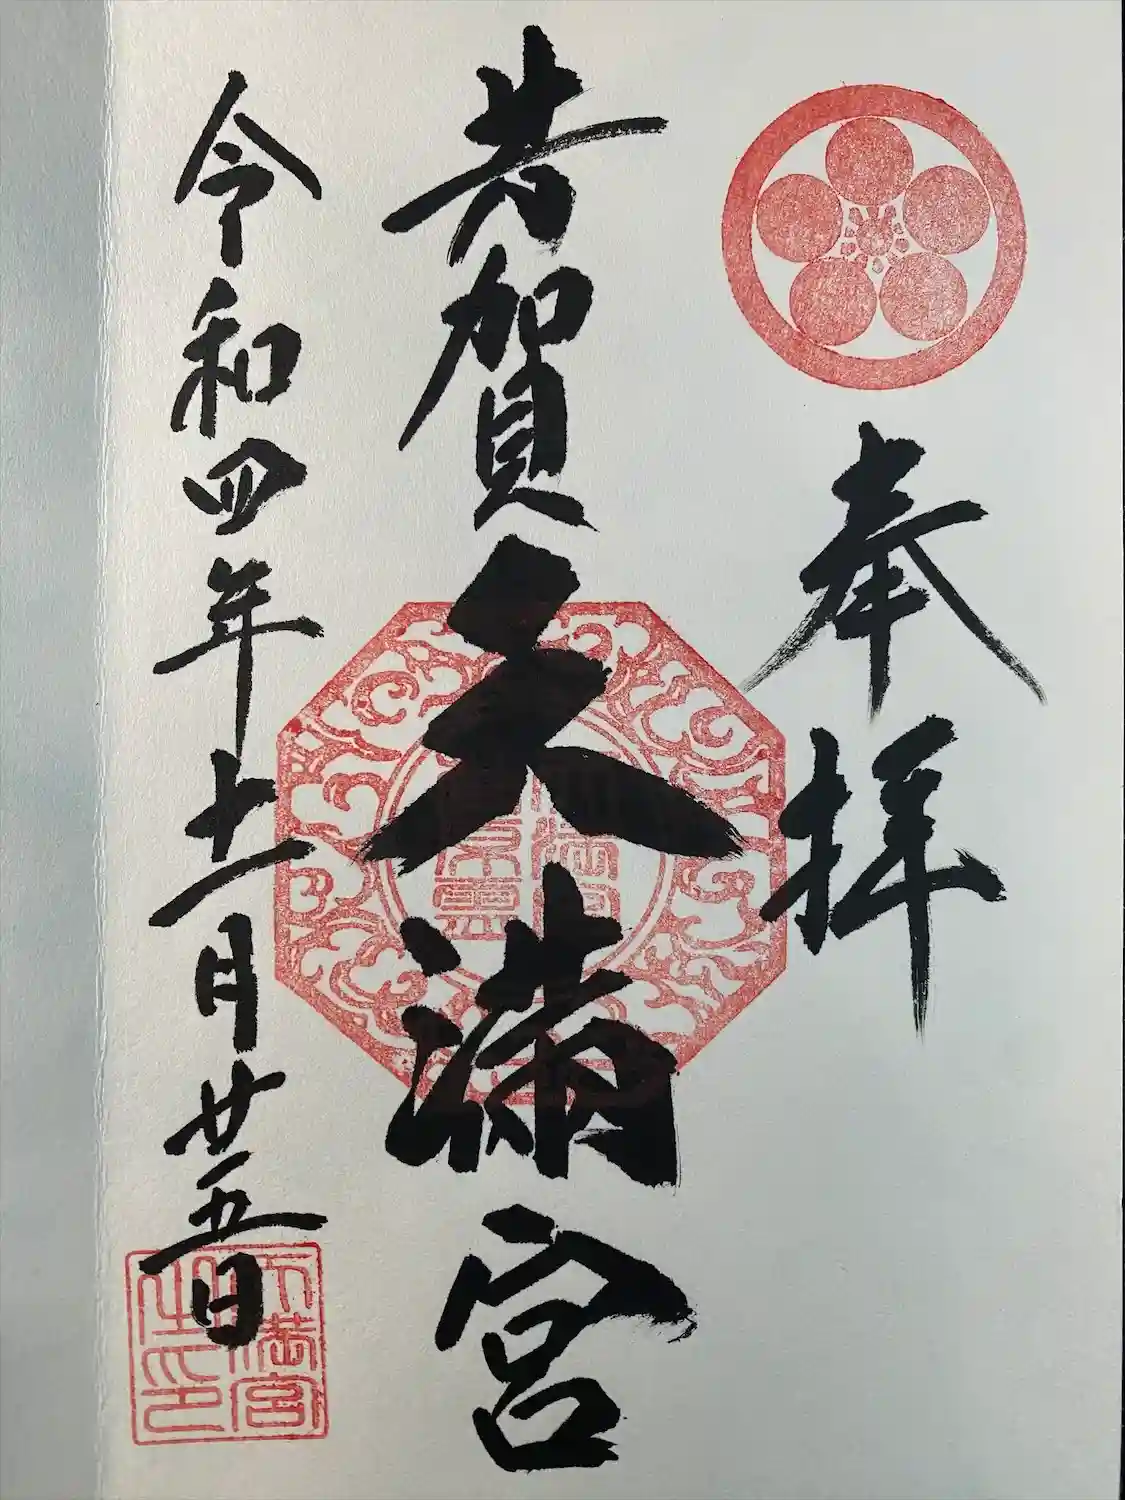 奉拝
芳賀天満宮
令和四年十一月廿五日
天満宮